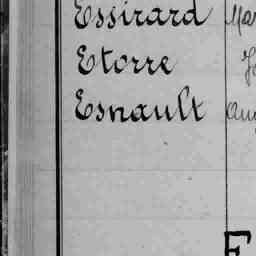 Essirard Mar
Etorre
Esnault Aug
E